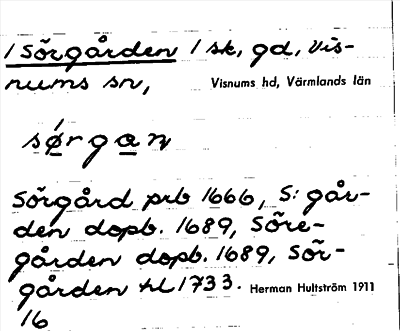 1 Sörgården 1 sk, gd, Vis-
nums sn, Visnums hd, Värmlands län
sǿrga̲n
Sörgård prb 1666, S: går-
den dopb. 1689, Söre-
gården dopb. 1689, Sör-
gården hl 1733. Herman Hultström 1911
16